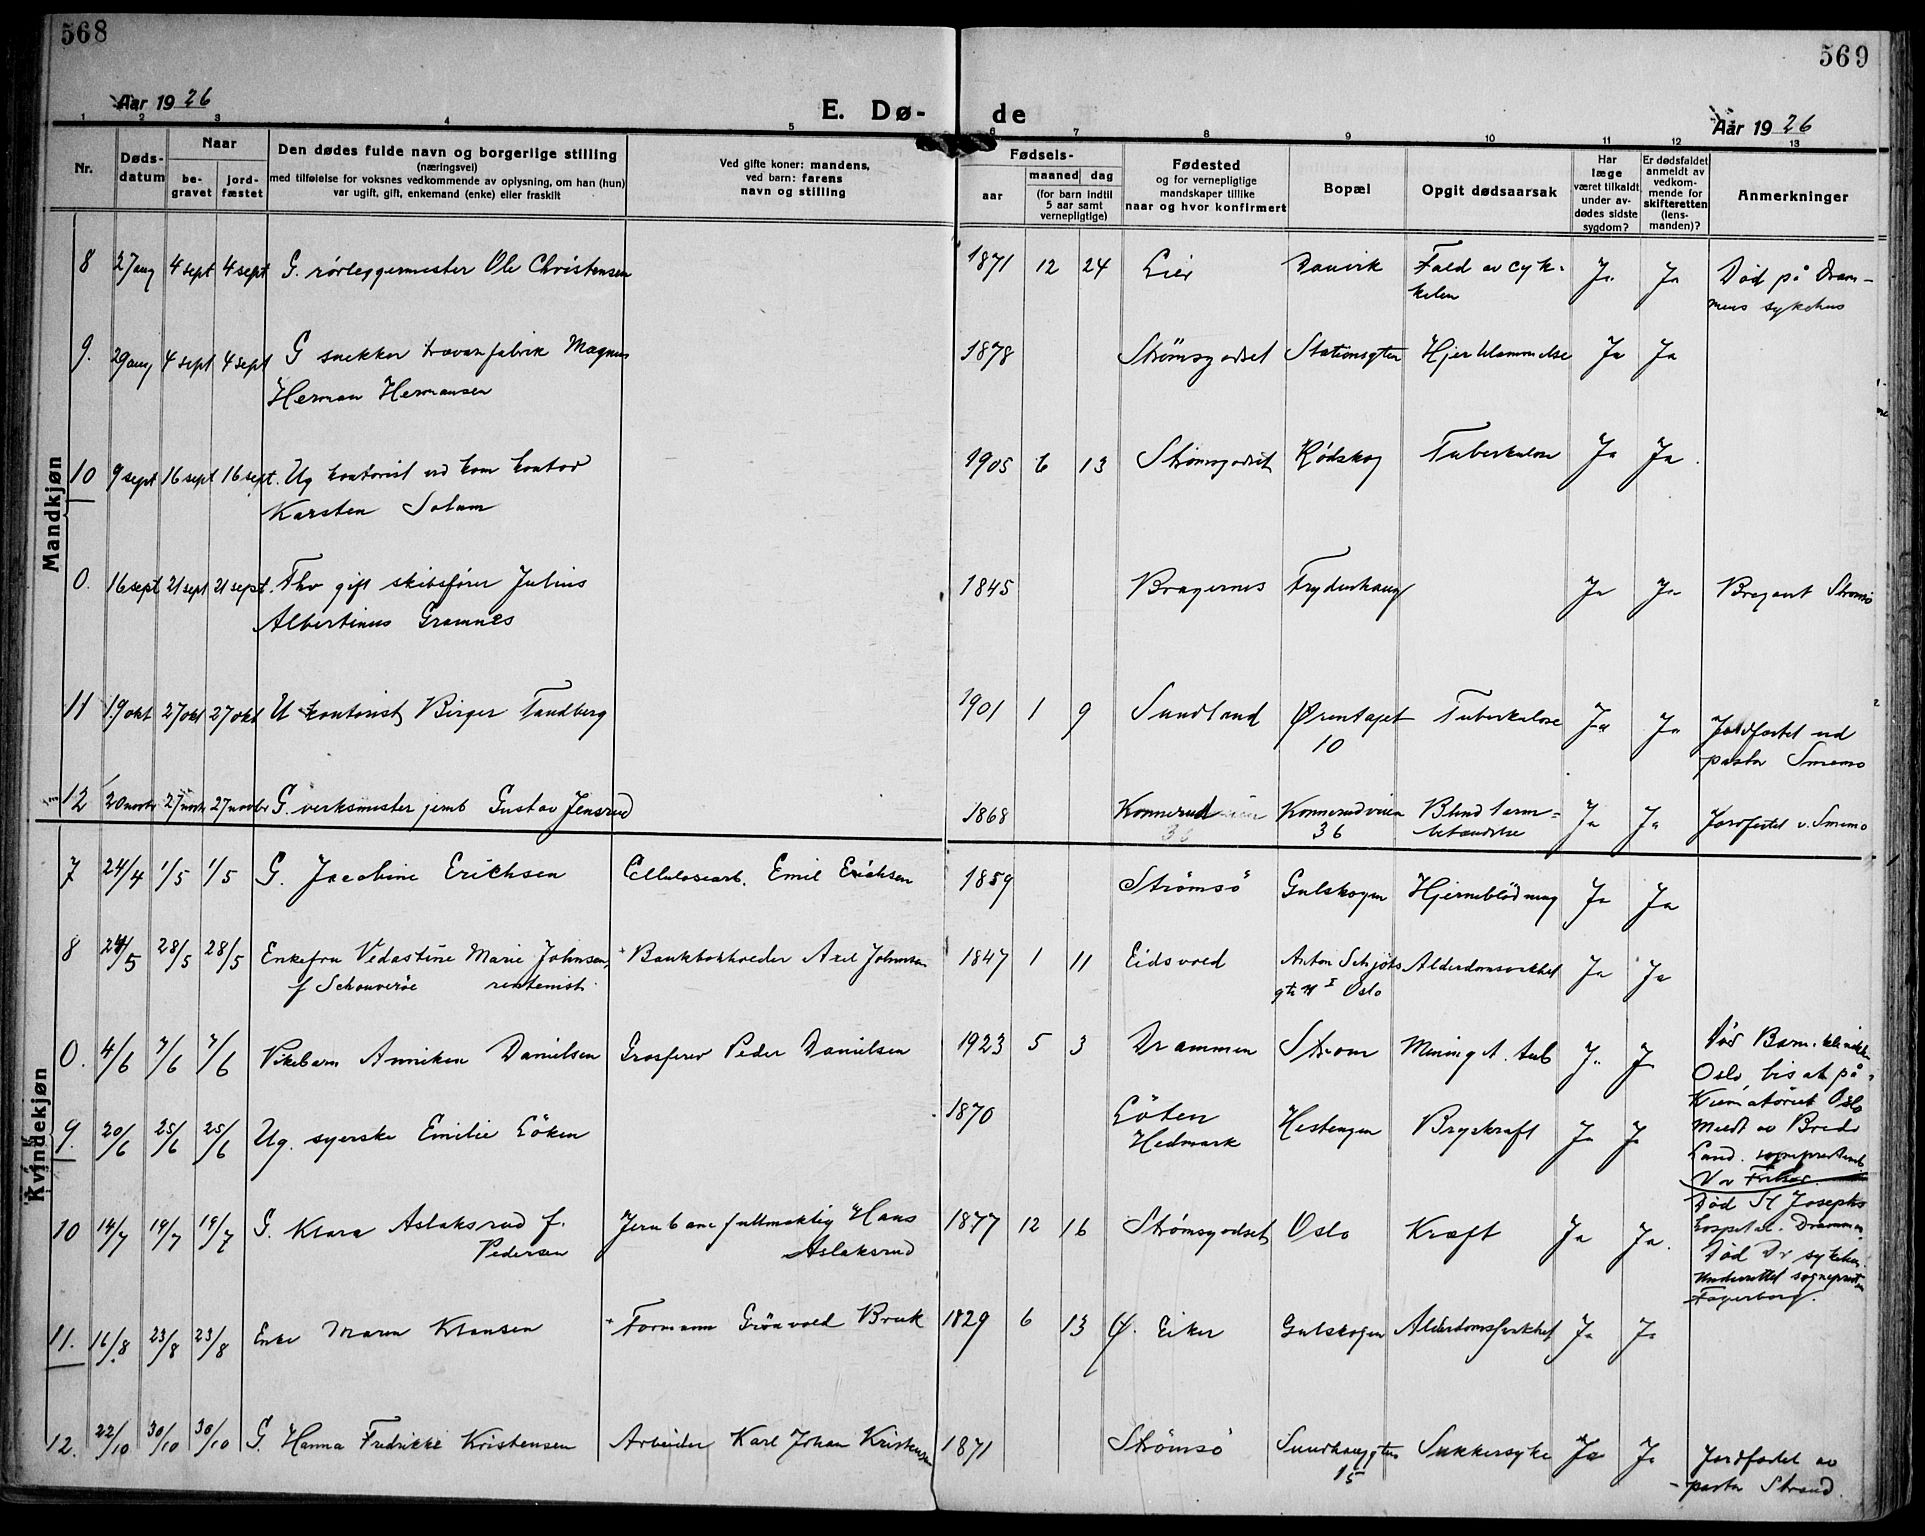 568
569
Aar 1926
E. Dø-
de
Aar 1926
1 2 3 4 5 6 7 8 9 10 11 12 13
Nr.
Døds-
datum
Naar
be-
gravet
jord-
fæstet
Den dødes fulde navn og borgerlige stilling
(næringsvei)
med tilføielse for voksnes vedkommende av oplysning, om han (hun)
var ugift, gift, enkemand (enke) eller fraskilt
Ved gifte koner: mandens,
ved barn: farens
navn og stilling
Fødsels-
aar
maaned dag
(for barn indtil
5 aar samt
vernepligtige)
Fødested
og for vernepligtige
mandskaper tillike
naar og hvor konfirmert
Bopæl
Opgit dødsaarsak
Har
læge
været tilkaldt
under av-
dødes sidste
sygdom?
Er dødsfaldet
anmeldt av
vedkom-
mende for
skifteretten
(lens-
manden)?
Anmerkninger
Mandkjøn
8 27 aug 4 sept 4 sept G. rørleggermester Ole Christensen 1871 12 24 Lier Danvik Fald av cyk-
kelen Ja Ja Død på Dram-
mens sykehus
9. 29 aug 4 sept 4 sept G snekker trævarefabrik Magnus
Herman Hermansen 1878 Strømsgodset Stationsgten Hjertelammelse Ja Ja
10 9 sept 16 sept 16 sept. Ug kontorist ved kom kontor
Karsten Solum 1905 6 13 Strømsgodset Rødskog Tuberkulose Ja Ja.
0. 16 sept 21 sept 21 sept. Fhv gift skibsfører Julius
Albertinus Gramnes 1845 Bragernes Frydenhaug Ja Ja Strømsø
11 19 okt 27 okt 27 okt U kontorist Birger Tandberg 1901 1 9 Sundland Ørentapet
10 Tuberkulose Ja Ja Jordfæstet ved
pastor Smemo
12 20 novbr 27 novbr 27 novbr G. verksmester jernb Gustav Jensrud 1868 Konnerud Konnerudveien
36 Blindtarm-
betændelse Ja Ja Jordfestet v. Smemo
Kvindekjøn
7 24/4 1/5 1/5 G. Jacobine Erichsen Cellulosearb. Emil Erichsen 1859 Strømsö Gulskogen Hjerneblödning Ja Ja
8 24/5 28/5 28/5 Enkefru Vedastine Marie Johnsen,
f Schouveröe rentenist. Bankbokholder Axel Johnsen 1847 1 11 Eidsvold Anton Schjøts
gt Oslo Alderdomsvakhet Ja Ja
0. 4/6 7/6 7/6 Pikebarn Anniken Danielsen Grosserer Peder Danielsen 1923 5 3 Drammen Strøm Mining t. tub Ja Ja Død Barneklinikken
Oslo, bisat på
Krematoriet Oslo
Meldt av Bredo
Land. sogneprestemb
9. 20/6 25/6 25/6 Ug. syerske Emilie Löken 1870 Löten
Hedmark Hestengen Brystkraft Ja Ja
Død St Josephs
hospital. Drammen
10 14/7 19/7 19/7 G. Klara Aslaksrud f.
Pedersen Jernbanefullmektig Hans
Aslaksrud 1877 12 16 Strømsgodset Oslo Kræft Ja Ja. Død Dr sykehus.
Underrettet sogneprest
Fagerborg.
11. 16/8 23/8 23/8 Enke Maren Klausen Formann Grönvold Bruk 1829 6 13 Ø. Eiker Gulskogen Alderdomssvakhet Ja Ja
12. 22/10 30/10 30/10 G. Hanna Fredrikke Kristensen Arbeider Karl Johan Kristensen 1871 Strömsö Sundhauggten
15 Sukkersyke Ja Ja Jordfæstet av
pastor Strand.